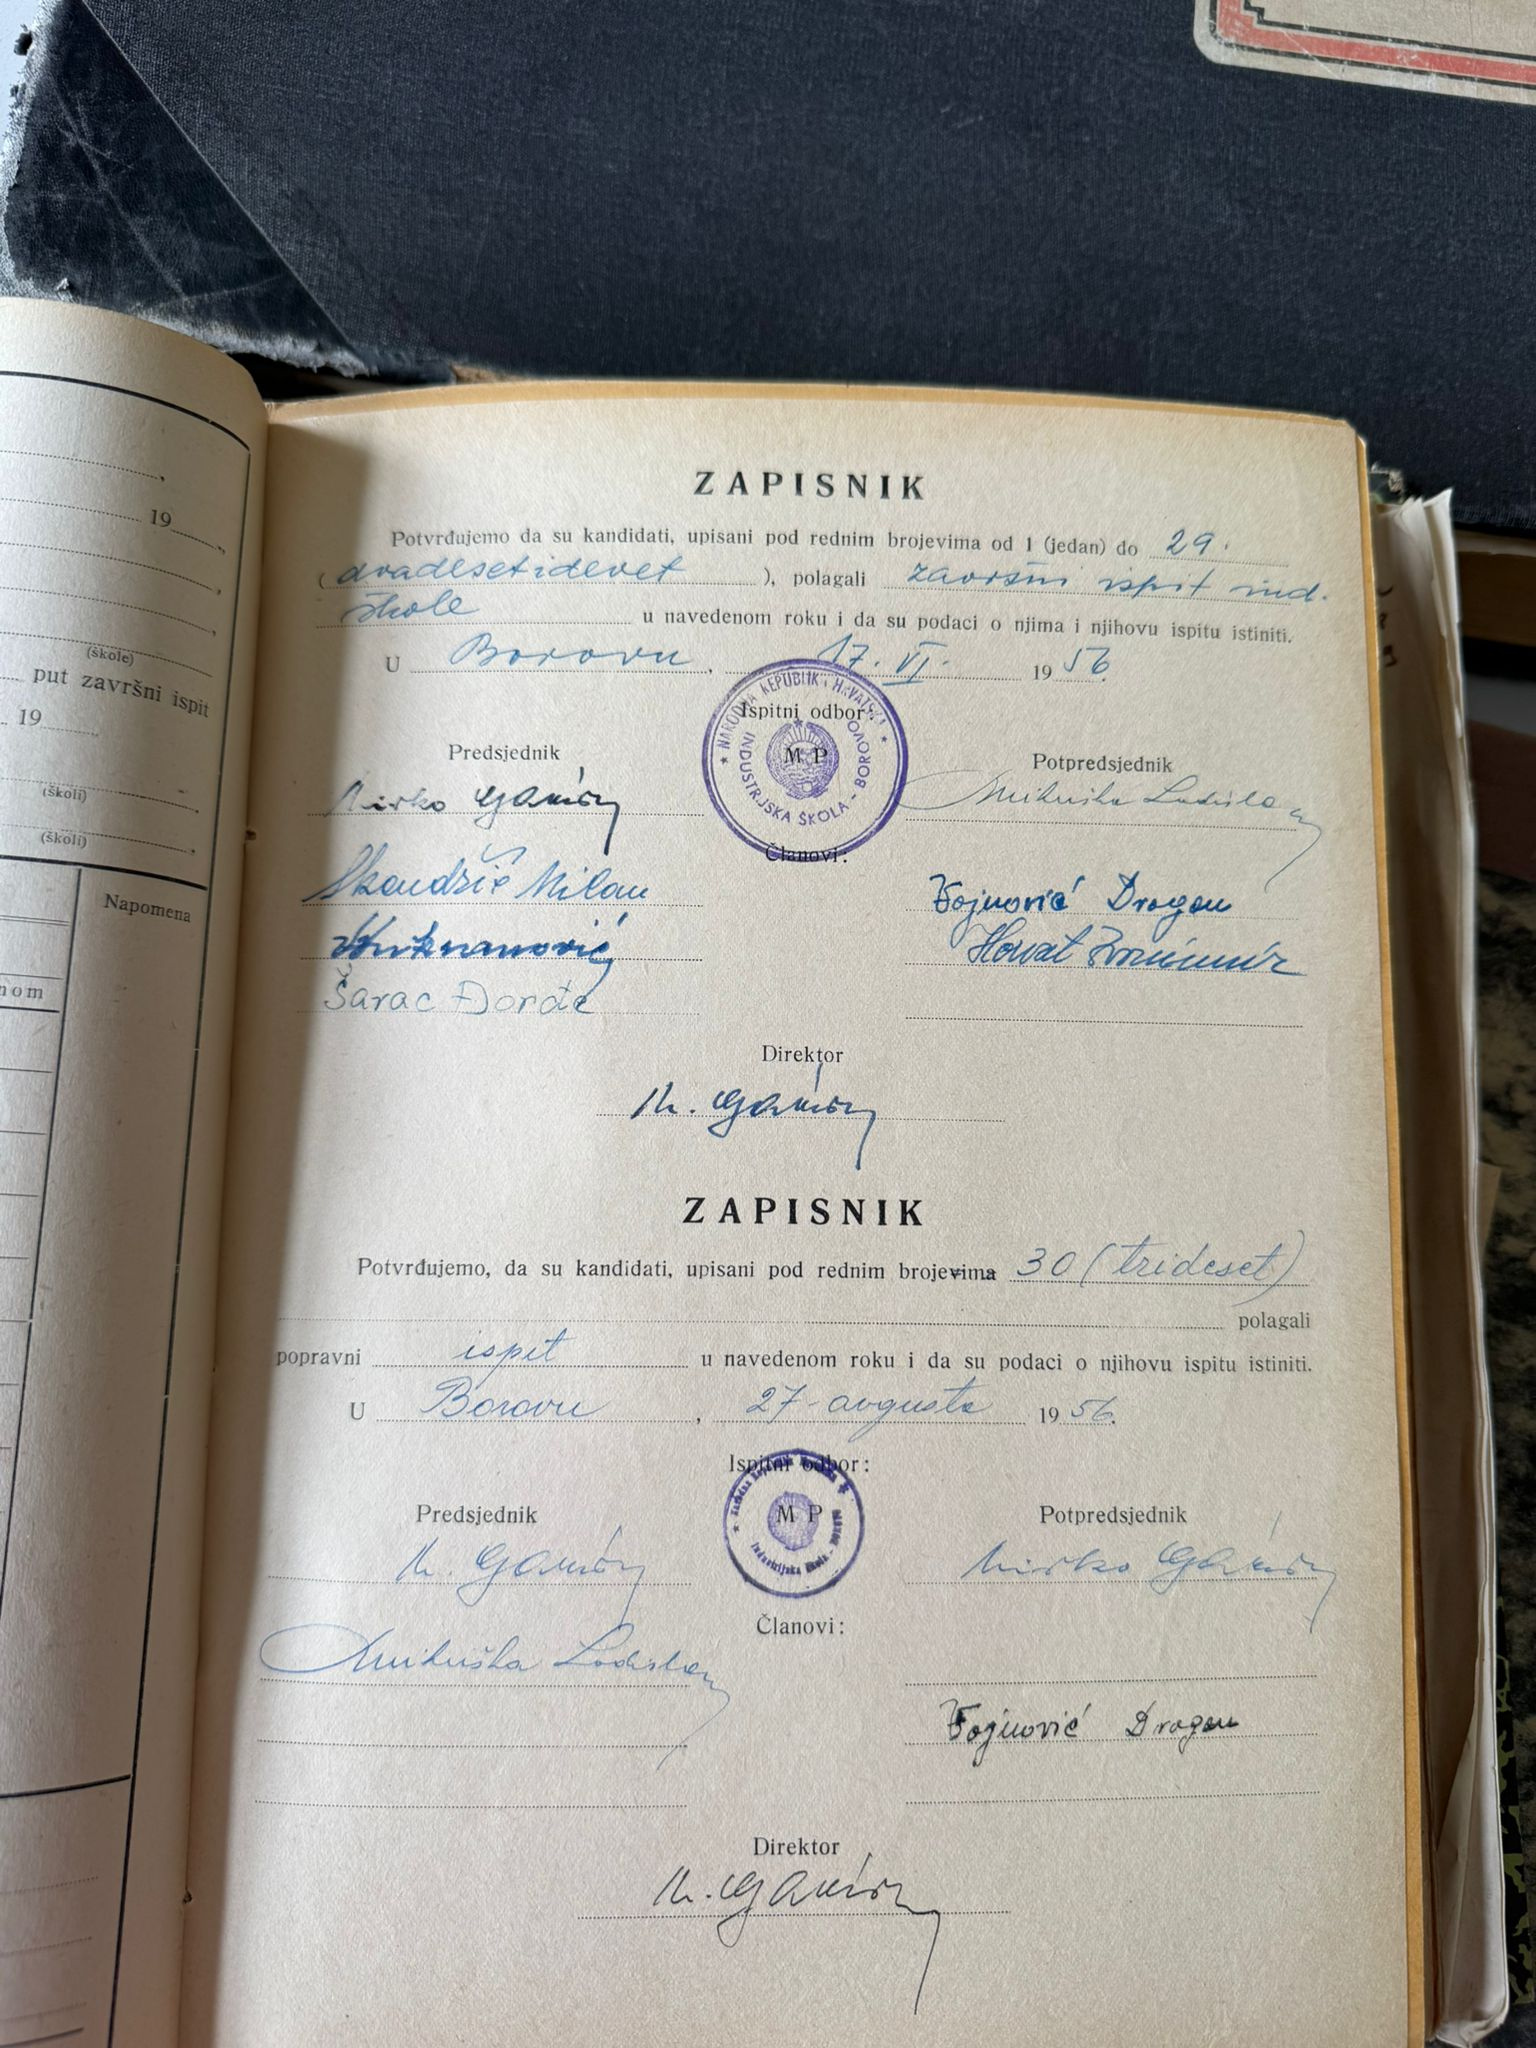 19
(škole)
put završni ispit
19
(školi)
(školi)
Napomena
nom
ZAPISNIK
Potvrđujemo da su kandidati, upisani pod rednim brojevima od 1 (jedan) do 29.
(dvadesetidevet), polagali završni ispit ind.
škole u navedenom roku i da su podaci o njima i njihovu ispitu istiniti.
U Borovu, 17. VI. 1956.
Ispitni odbor:
NARODNA REPUBLIKA HRVATSKA
INDUSTRIJSKA ŠKOLA - BOROVO
M P
Predsjednik Potpredsjednik
Mirko Mikuška Ladislav
Članovi:
Skendžić Milan Vojnović Dragan
Horvat Zvonimir
Šarac Đorđe
Direktor
M.
ZAPISNIK
Potvrđujemo, da su kandidati, upisani pod rednim brojevima 30 (trideset)
polagali
popravni ispit u navedenom roku i da su podaci o njihovu ispitu istiniti.
U Borovu, 27 avgusta 1956.
Ispitni odbor:
Industrijska škola - Borovo
M P
Predsjednik Potpredsjednik
M. Mirko
Članovi:
Mikuška Ladislav
Vojnović Dragan
Direktor
M.